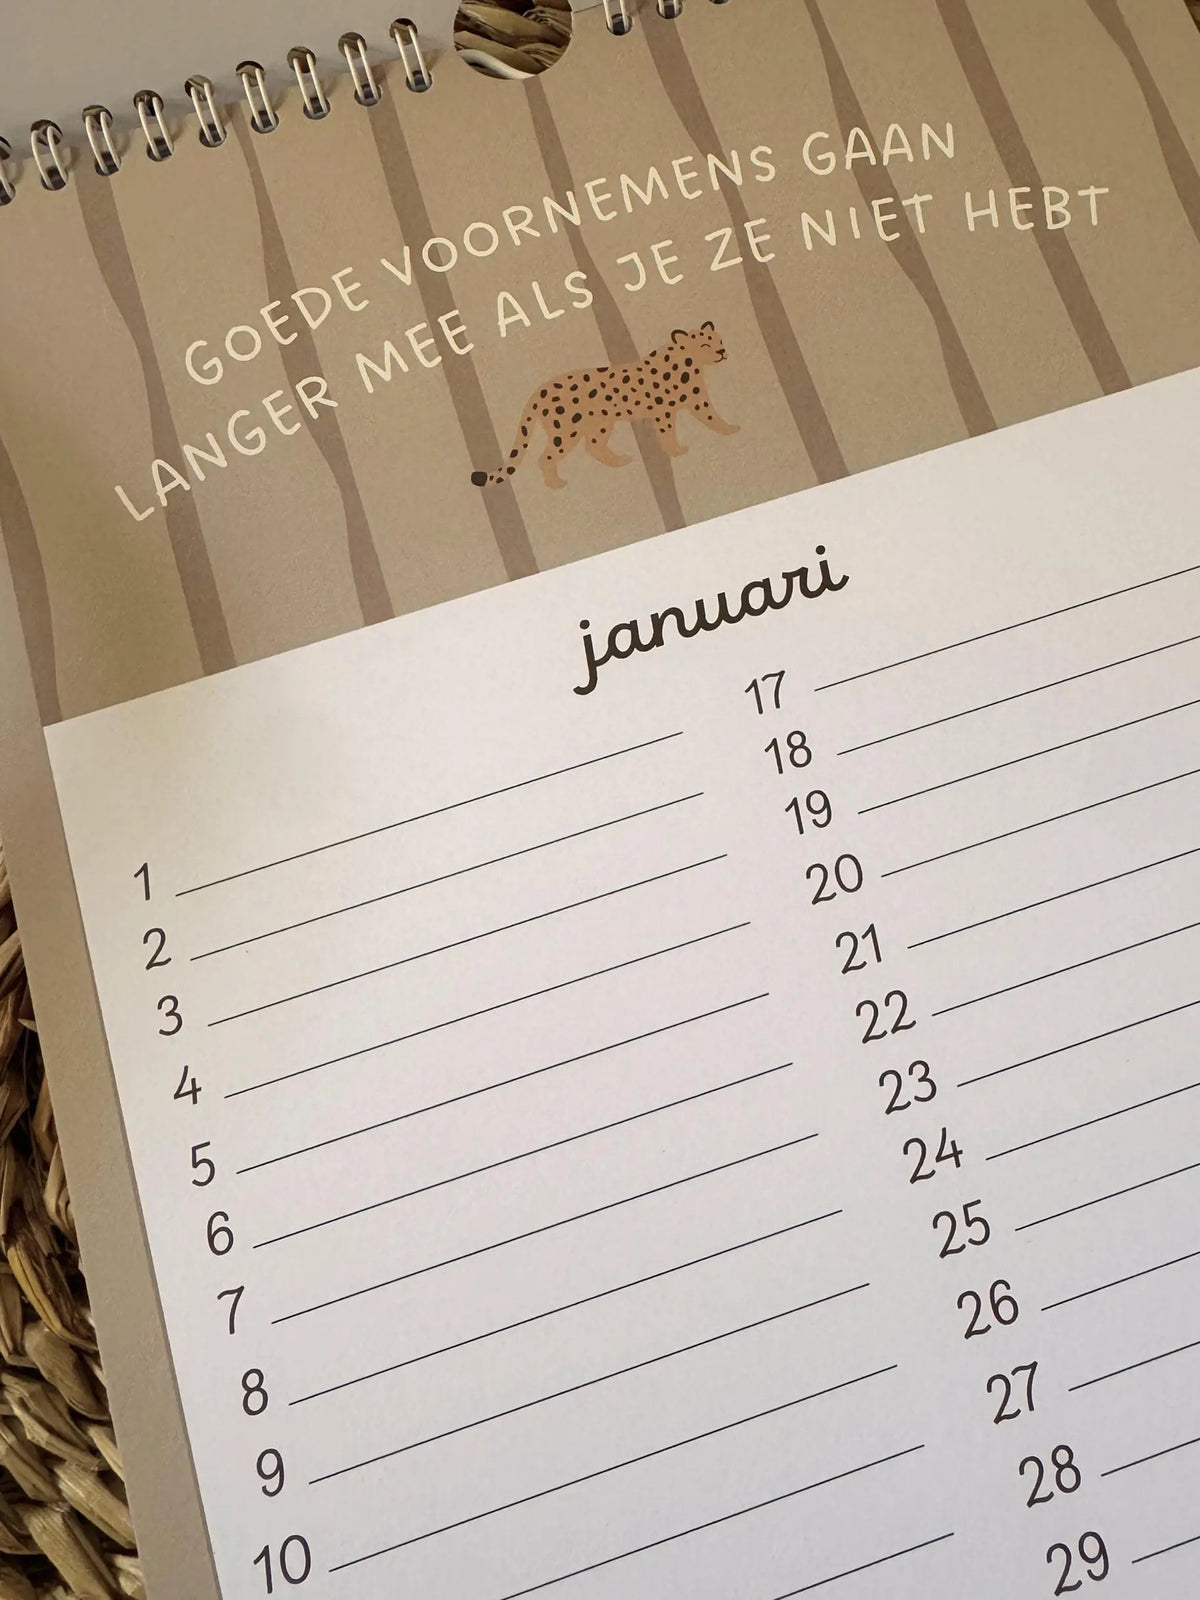 GOEDE VOORNEMENS GAAN
LANGER MEE ALS JE ZE NIET HEBT
januari
1
2
3
4
5
6
7
8
9
10
17
18
19
20
21
22
23
24
25
26
27
28
29